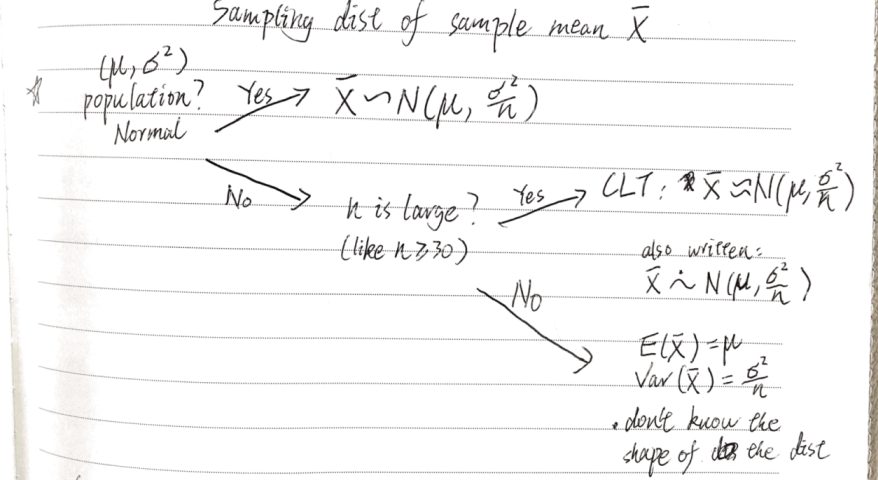 Sampling dist of sample mean X̄
(μ, σ²)
☆ population? Yes X̄ ~ N(μ, σ²/n)
Normal
No n is large? Yes CLT: X̄ ≈ N(μ, σ²/n)
(like n ≥ 30)
also written:
X̄ ∼̇ N(μ, σ²/n)
No
E(X̄) = μ
Var(X̄) = σ²/n
. don't know the
shape of the dist